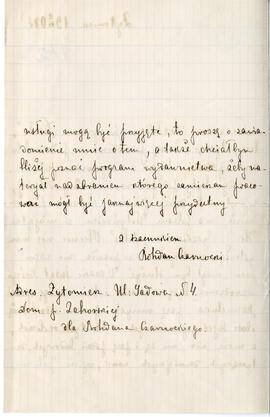 usługi mogą być przyjęte, to proszę o zawia-
domienie mnie o tem, a także chciałbym
bliżej poznać program wydawnictwa, żeby ma-
teryał nad zbraniem którego zamierzam praco-
wać mógł być jaknajwięcej przydatny
Z szacunkiem
Bohdan Czarnocki.
Adres. Żytomierz. Ul: Sadowa N 4
Dom p. Zahorskiej
dla Bohdana Czarnockiego.